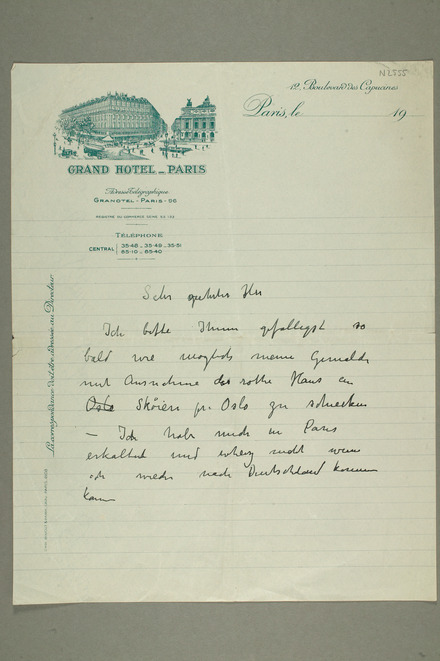 N 2755
12. Boulevard des Capucines
Paris, le 19
GRAND HOTEL _ PARIS
Adresse Télégraphique
GRANOTEL - PARIS - 96
REGISTRE DU COMMERCE SEINE
TÉLÉPHONE
CENTRAL 35-48 _ 35-49 _ 35-51
65-10 _ 65-40
La correspondance doit être adressée au Directeur
Sehr geehrter Herr
Ich bitte Ihnen gefälligst so
bald wie möglich meine Gemälde
mit Ausnahme das rothe Haus an
Oslo Skøien pr Oslo zu schicken
– Ich habe mich in Paris
erkältet und weiss nicht wann
ich wieder nach Deutschland kommen
kann